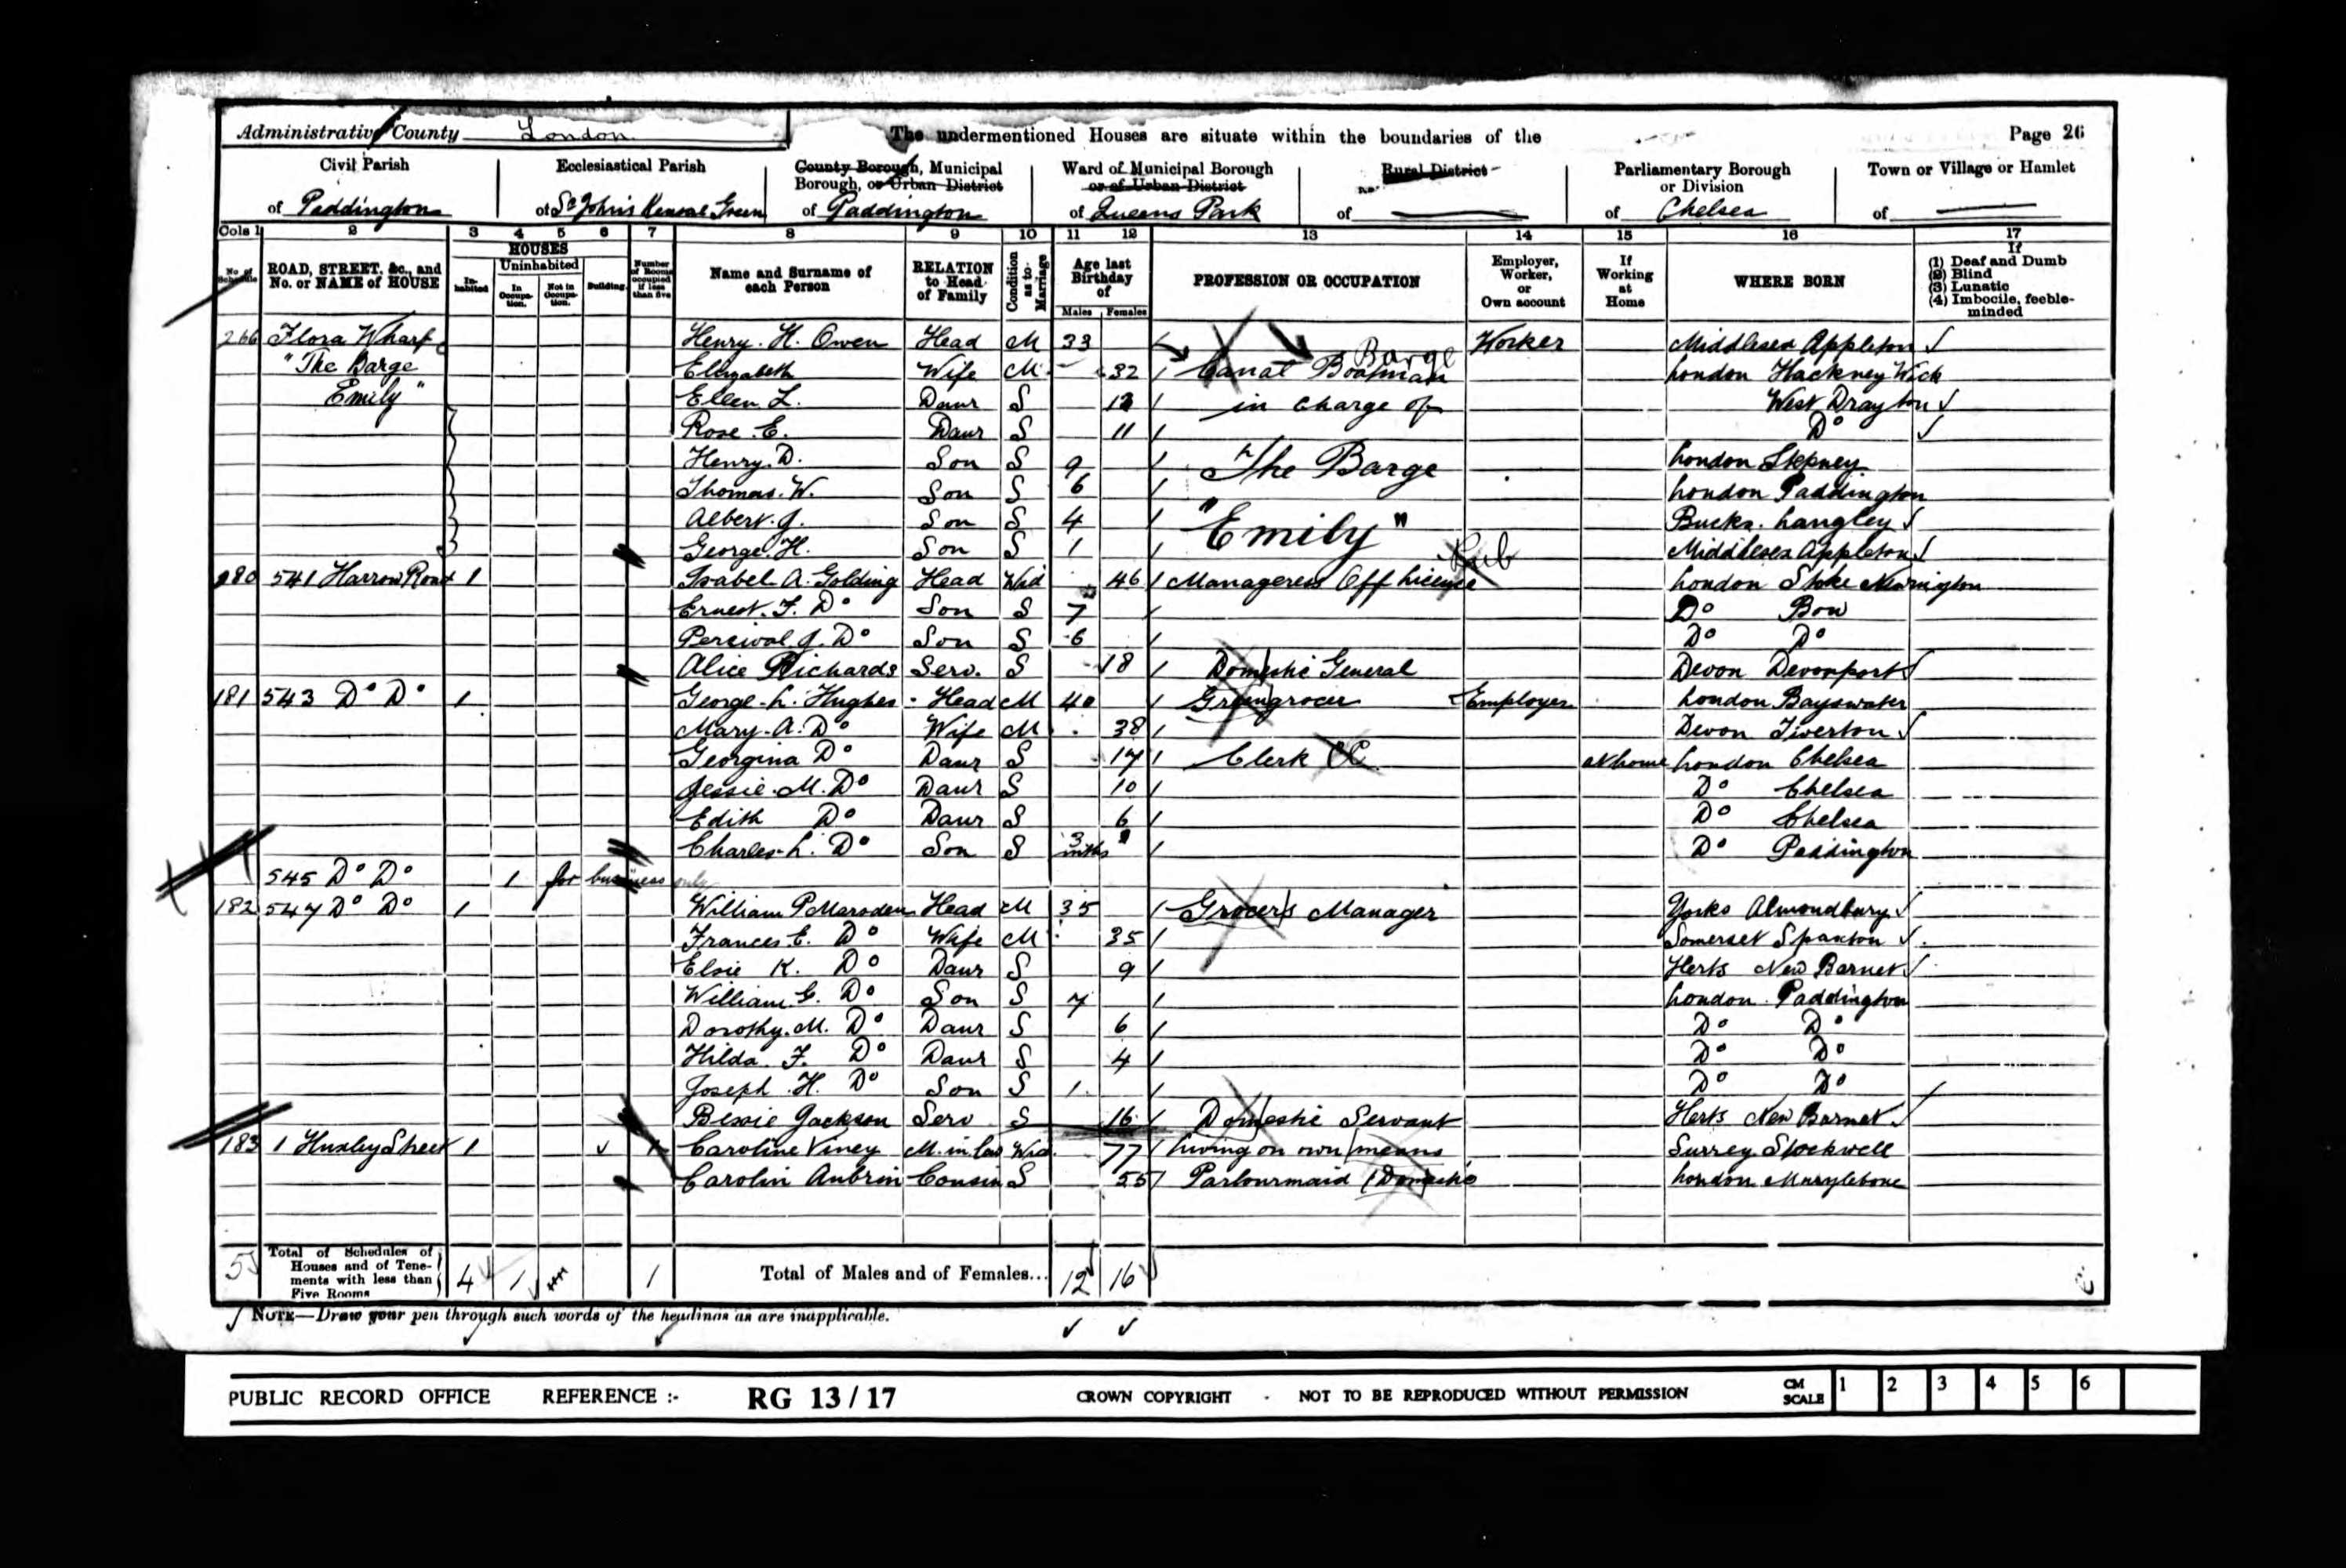 Administrative County London The undermentioned Houses are situate within the boundaries of the Page 26
Civil Parish Ecclesiastical Parish County Borough, Municipal Borough, or Urban District Ward of Municipal Borough or of Urban District Rural District Parliamentary Borough or Division Town or Village or Hamlet
of Paddington of St Johns Kensal Green of Paddington of Queens Park of of Chelsea of
Cols 1 2 3 4 5 6 7 8 9 10 11 12 13 14 15 16 17
No. of Schedule ROAD, STREET, &c., and No. or NAME of HOUSE HOUSES Inhabited Uninhabited In Occupation. Not in Occupation. Building. Number of Rooms occupied if less than five Name and Surname of each Person RELATION to Head of Family Condition as to Marriage Age last Birthday of Males Females PROFESSION OR OCCUPATION Employer, Worker, or Own account If Working at Home WHERE BORN If (1) Deaf and Dumb (2) Blind (3) Lunatic (4) Imbecile, feeble-minded
266 Flora Wharf Henry. H. Owen Head M 33 Worker Middlesex Appleton
"The Barge Elizabeth Wife M 32 Canal Boatman Barge London Hackney Wick
Emily" Ellen L. Daur S 13 in charge of West Drayton
Rose. E. Daur S 11 Do
Henry. D. Son S 9 The Barge London Stepney
Thomas. W. Son S 6 London Paddington
Albert. J. Son S 4 "Emily" Bucks. Langley
George. H. Son S 1 Middlesex Appleton
180 541 Harrow Road 1 Isabel A. Golding Head Wid 46 Manageress Off License Pub London Stoke Newington
Ernest. F. Do Son S 7 Do Bow
Percival. J. Do Son S 6 Do Do
Alice Richards Serv. S 18 Domestic General Devon Devonport
181 543 Do Do 1 George. L. Hughes Head M 40 Greengrocer Employer London Bayswater
Mary. A. Do Wife M 38 Devon Tiverton
Georgina Do Daur S 17 Clerk At home London Chelsea
Jessie. M. Do Daur S 10 Do Chelsea
Edith Do Daur S 6 Do Chelsea
Charles. L. Do Son S 3 mths Do Paddington
545 Do Do 1 for business only
182 547 Do Do 1 William P Marsden Head M 35 Grocers Manager Yorks Almondbury
Frances E. Do Wife M 35 Somerset Spaxton
Elsie K. Do Daur S 9 Herts New Barnet
William G. Do Son S 7 London Paddington
Dorothy. M. Do Daur S 6 Do Do
Hilda. F. Do Daur S 4 Do Do
Joseph. H. Do Son S 1 Do Do
Bessie Jackson Serv S 16 Domestic Servant Herts New Barnet
183 1 Huxley Street 1 Caroline Viney M. in law Wid. 77 Living on own means Surrey Stockwell
Carolin Aubrin Cousin S 55 Parlourmaid (Domestic London Marylebone
5 Total of Schedules of Houses and of Tenements with less than Five Rooms 4 1 1 Total of Males and of Females... 12 16
NOTE—Draw your pen through such words of the headings as are inapplicable.
PUBLIC RECORD OFFICE REFERENCE :- RG 13 / 17 CROWN COPYRIGHT - NOT TO BE REPRODUCED WITHOUT PERMISSION CM SCALE 1 2 3 4 5 6